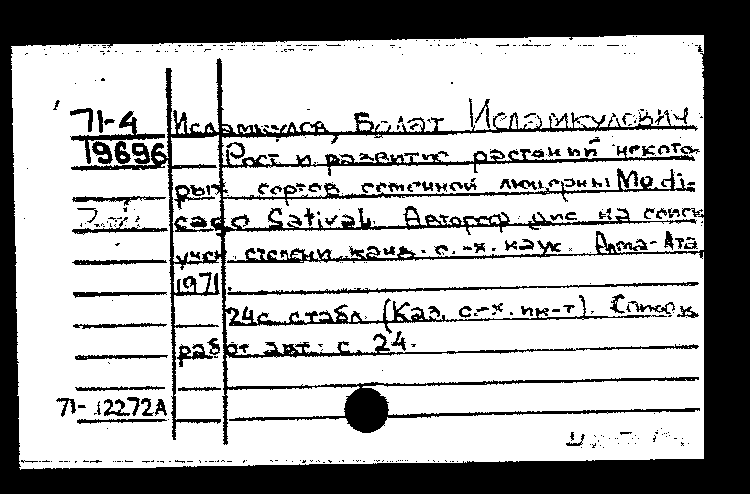 71-4 Исламкулов, Болат Исламкулович
19696 Рост и развитие растений некото-
рых сортов семенной люцерны Medi-
cago Sativa L. Автореф дис на соиск
учен степени канд. с.-х. наук. Алма-Ата,
1971.
24с с табл (Каз. с.-х. ин-т). Список
работ авт.: с. 24.
71-12272А